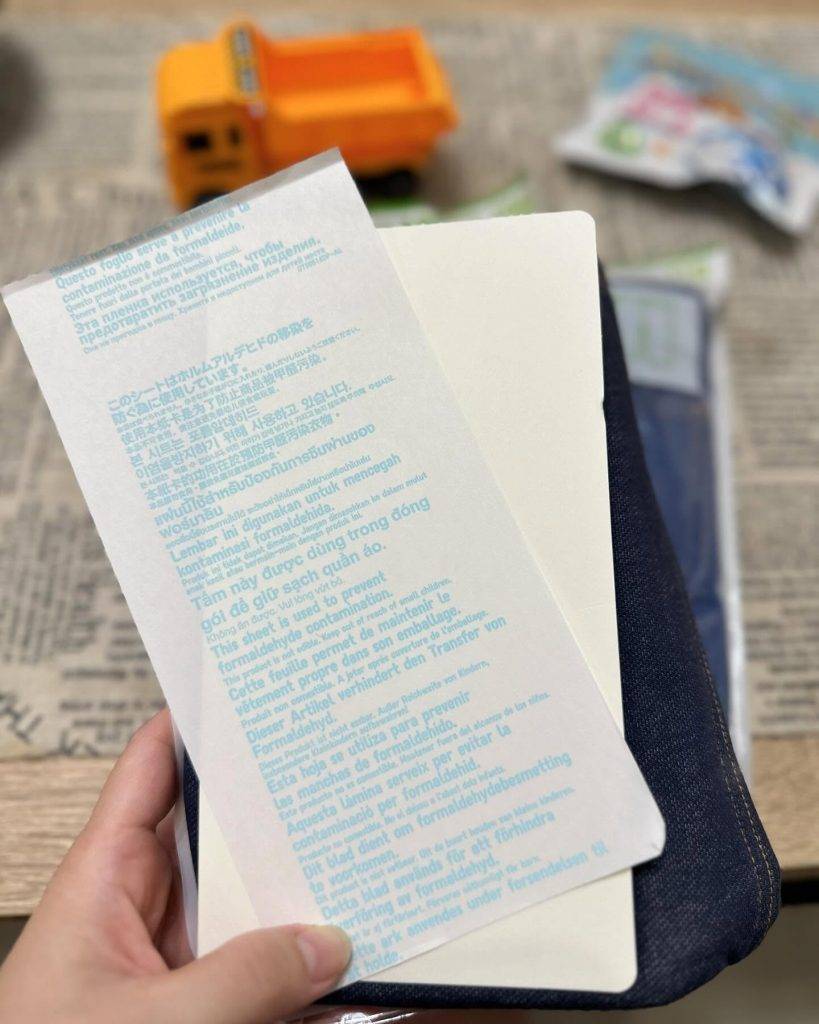 Questo foglio serve a prevenire la
contaminazione da formaldeide.
Questo prodotto non è commestibile.
Tenere fuori dalla portata dei bambini piccoli.
Эта пленка используется, чтобы
предотвратить загрязнение изделия.
Она не пригодна в пищу. Храните в недоступном для детей месте.
このシートはホルムアルデヒドの移染を
防ぐ為に使用しています。
使用本纸卡是为了防止商品被甲醛污染。
본 시트는 포름알데히드
이염을방지하기 위해 사용하고 있습니다.
本紙卡的功用在於預防甲醛污染衣物。
แผ่นนี้ใช้สำหรับป้องกันการซึมผ่านของ
ฟอร์มาลีน
Lembar ini digunakan untuk mencegah
kontaminasi formaldehida.
Produk ini tidak dapat dimakan. Jangan dimasukkan ke dalam mulut
anak kecil atau bermain-main dengan produk ini.
Tấm này được dùng trong đóng
gói để giữ sạch quần áo.
Không ăn được. Vui lòng vứt bỏ.
This sheet is used to prevent
formaldehyde contamination.
This product is not edible. Keep out of reach of small children.
Cette feuille permet de maintenir le
vêtement propre dans son emballage.
Produit non comestible. A jeter après ouverture de l'emballage.
Dieser Artikel verhindert den Transfer von
Formaldehyd.
Dieses Produkt ist nicht essbar. Außer Reichweite von Kindern,
insbesondere Kleinkindern aufbewahren.
Esta hoja se utiliza para prevenir
las manchas de formaldehido.
Este producto no es comestible. Mantener fuera del alcance de los niños.
Aquesta làmina serveix per evitar la
contaminació per formaldehid.
Producte no comestible. No el deixeu a l'abast dels infants.
Dit blad dient om formaldehydebesmetting
te voorkomen.
Dit product is niet eetbaar. Uit de buurt houden van kleine kinderen.
Detta blad används för att förhindra
överföring av formaldehyd.
ark anvendes under forsendelsen til
holde.